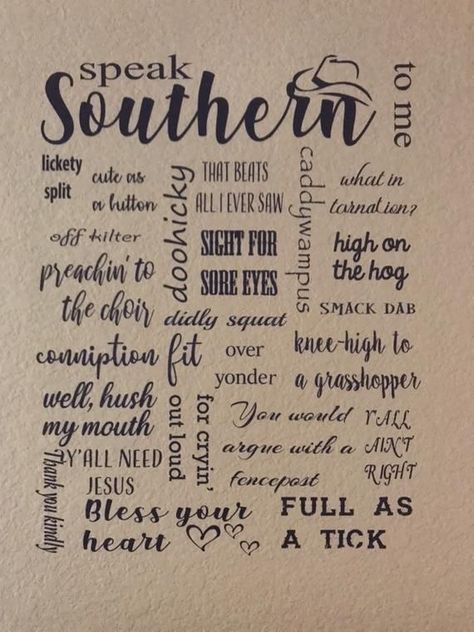 speak
Southern
to me
lickety
split
cute as
a button
doohicky
THAT BEATS
ALL I EVER SAW
caddywampus
what in
tarnation?
off kilter
SIGHT FOR
SORE EYES
high on
the hog
preachin' to
the choir
didly squat
SMACK DAB
conniption fit
over
yonder
knee-high to
a grasshopper
well, hush
my mouth
for cryin'
out loud
You would
argue with a
fencepost
Y'ALL
AIN'T
RIGHT
Thank you kindly
Y'ALL NEED
JESUS
Bless your
heart
FULL AS
A TICK